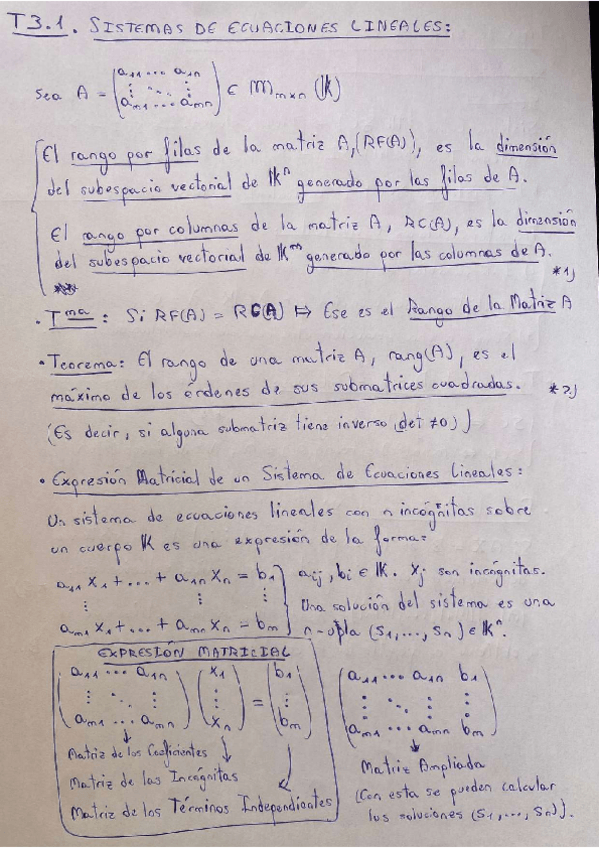 T3.1. SISTEMAS DE ECUACIONES LINEALES:
Sea A = (a11 ... a1n ⋮ ⋱ ⋮ am1 ... amn) ∈ Mm×n (K)
El rango por filas de la matriz A, (RF(A)), es la dimensión
del subespacio vectorial de Kⁿ generado por las filas de A.
El rango por columnas de la matriz A, RC(A), es la dimensión
del subespacio vectorial de Kᵐ generado por las columnas de A.
*1)
· Tma: Si RF(A) = RC(A) ↦ Ese es el Rango de la Matriz A
· Teorema: El rango de una matriz A, rang(A), es el
máximo de los órdenes de sus submatrices cuadradas. *2)
(Es decir, si alguna submatriz tiene inverso (det ≠0))
· Expresión Matricial de un Sistema de Ecuaciones Lineales:
Un sistema de ecuaciones lineales con n incógnitas sobre
un cuerpo K es una expresión de la forma:
a11 x1 + ... + a1n xn = b1 } aij, bi ∈ K. xj son incógnitas.
⋮ ⋮ ⋮ Una solución del sistema es una
am1 x1 + ... + amn xn = bm n-upla (s1, ..., sn) ∈ Kⁿ.
EXPRESIÓN MATRICIAL
(a11 ... a1n ⋮ ⋱ ⋮ am1 ... amn) (x1 ⋮ xn) = (b1 ⋮ bm)
↓ Matriz de los Coeficientes
↓ Matriz de las Incógnitas
Matriz de los Términos Independientes
(a11 ... a1n b1 ⋮ ⋱ ⋮ ⋮ am1 ... amn bm)
↓
Matriz Ampliada
(Con esta se pueden calcular
las soluciones (s1, ..., sn)).